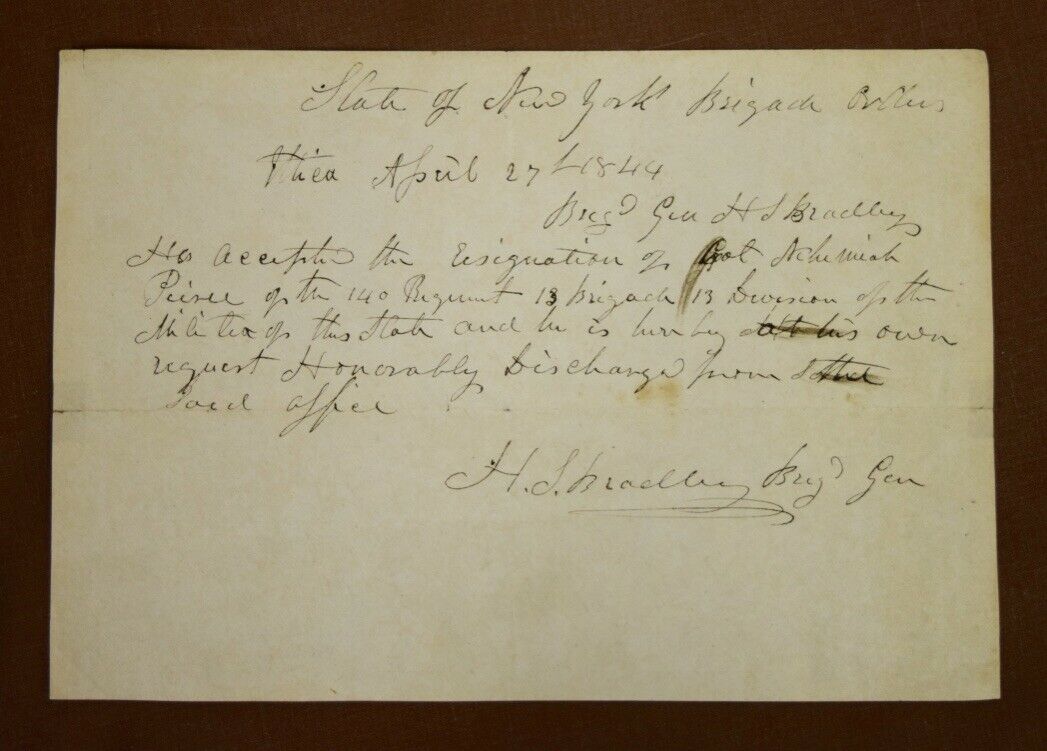 State of New York Brigade Orders
Utica April 27th 1844
Brigd Gen H S Bradley
Has accepted the Resignation of Col Nehemiah
Peirce of the 140 Regiment 13 Brigade 13 Division of the
Militia of this State and he is hereby at his own
request Honorably Discharged from
Said office
H. S. Bradley Brigd Gen